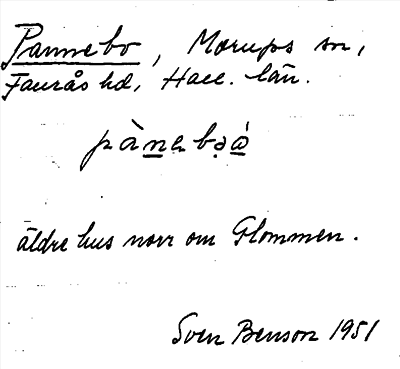 Pannebo, Morups sn,
Faurås hd, Hall. län.
pànebọå̀
äldre hus norr om Glommen.
Sven Benson 1951